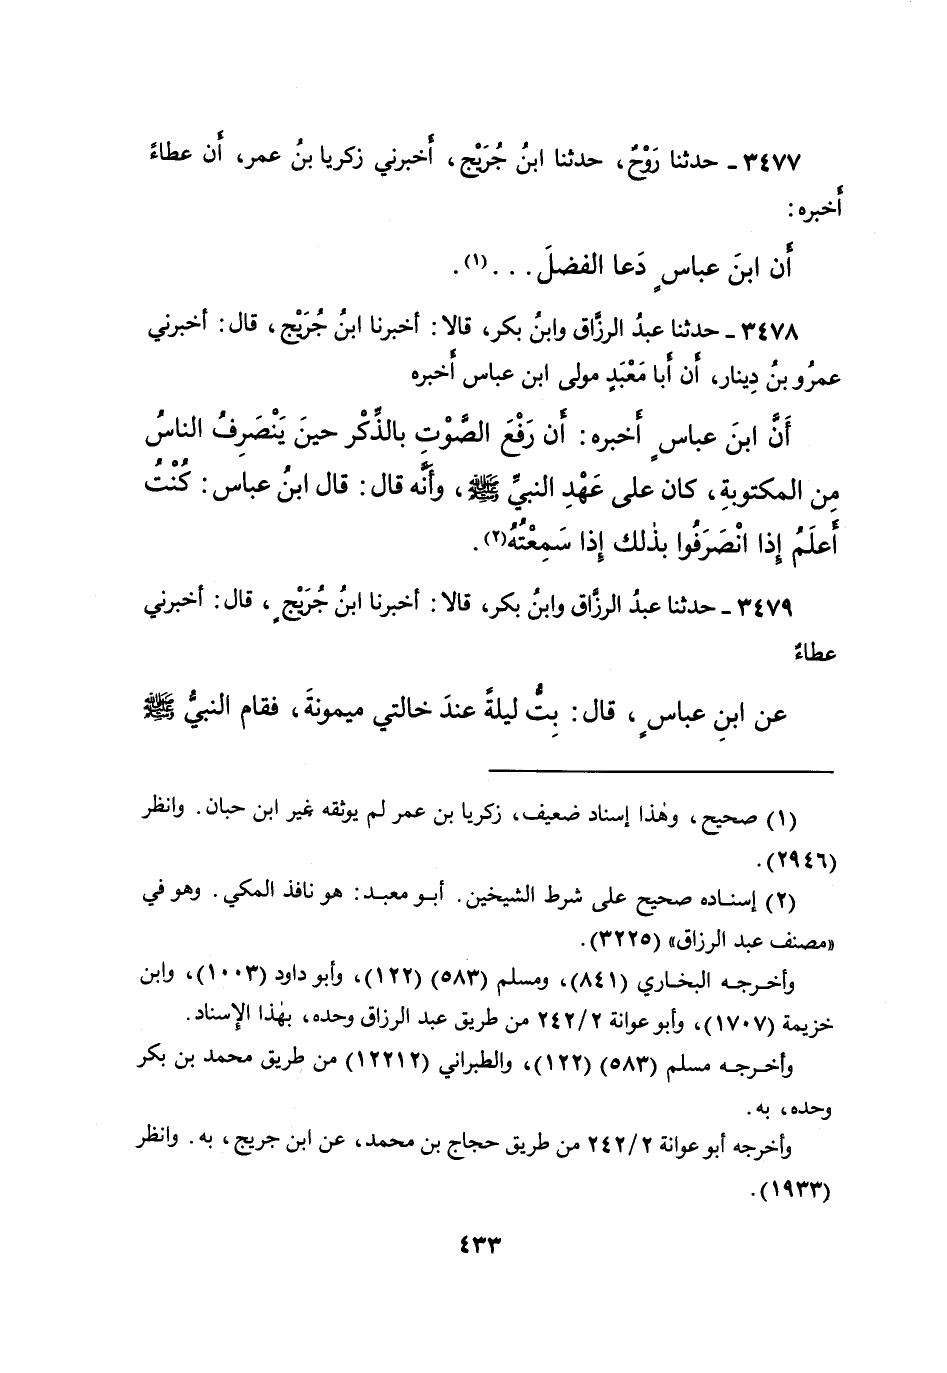 ٣٤٧٧ ـ حدثنا رَوْحٌ، حدثنا ابنُ جُرَيْجٍ، أَخبرني زكريا بنُ عمر، أَن عطاءً
أَخبره:
أَن ابنَ عباسٍ دَعا الفضلَ...(١).
٣٤٧٨ ـ حدثنا عبدُ الرزَّاق وابنُ بكر، قالا: أخبرنا ابنُ جُرَيْجٍ، قال: أخبرني
عمرُو بنُ دِينار، أَن أَبا مَعْبَدٍ مولى ابن عباس أَخبره
أَنَّ ابنَ عباسٍ أَخبره: أَن رَفْعَ الصَّوْتِ بالذِّكْر حينَ يَنْصَرِفُ الناسُ
مِن المكتوبةِ، كان على عَهْدِ النبيِّ ﷺ، وأَنَّه قال: قال ابنُ عباس: كُنْتُ
أَعلَمُ إِذا انْصَرَفُوا بذٰلك إِذا سَمِعْتُهُ(٢).
٣٤٧٩ ـ حدثنا عبدُ الرزَّاق وابنُ بكر، قالا: أخبرنا ابنُ جُرَيْجٍ، قال: أخبرني
عطاءٌ
عن ابنِ عباسٍ، قال: بِتُّ ليلةً عندَ خالتي ميمونةَ، فقام النبيُّ ﷺ
(١) صحيح، وهٰذا إسناد ضعيف، زكريا بن عمر لم يوثقه غير ابن حبان. وانظر
(٢٩٤٦).
(٢) إسناده صحيح على شرط الشيخين. أبو معبد: هو نافذ المكي. وهو في
«مصنف عبد الرزاق» (٣٢٢٥).
وأخرجه البخاري (٨٤١)، ومسلم (٥٨٣) (١٢٢)، وأبو داود (١٠٠٣)، وابن
خزيمة (١٧٠٧)، وأبو عوانة ٢٤٢/٢ من طريق عبد الرزاق وحده، بهٰذا الإسناد.
وأخرجه مسلم (٥٨٣) (١٢٢)، والطبراني (١٢٢١٢) من طريق محمد بن بكر
وحده، به.
وأخرجه أبو عوانة ٢٤٢/٢ من طريق حجاج بن محمد، عن ابن جريج، به. وانظر
(١٩٣٣).
٤٣٣